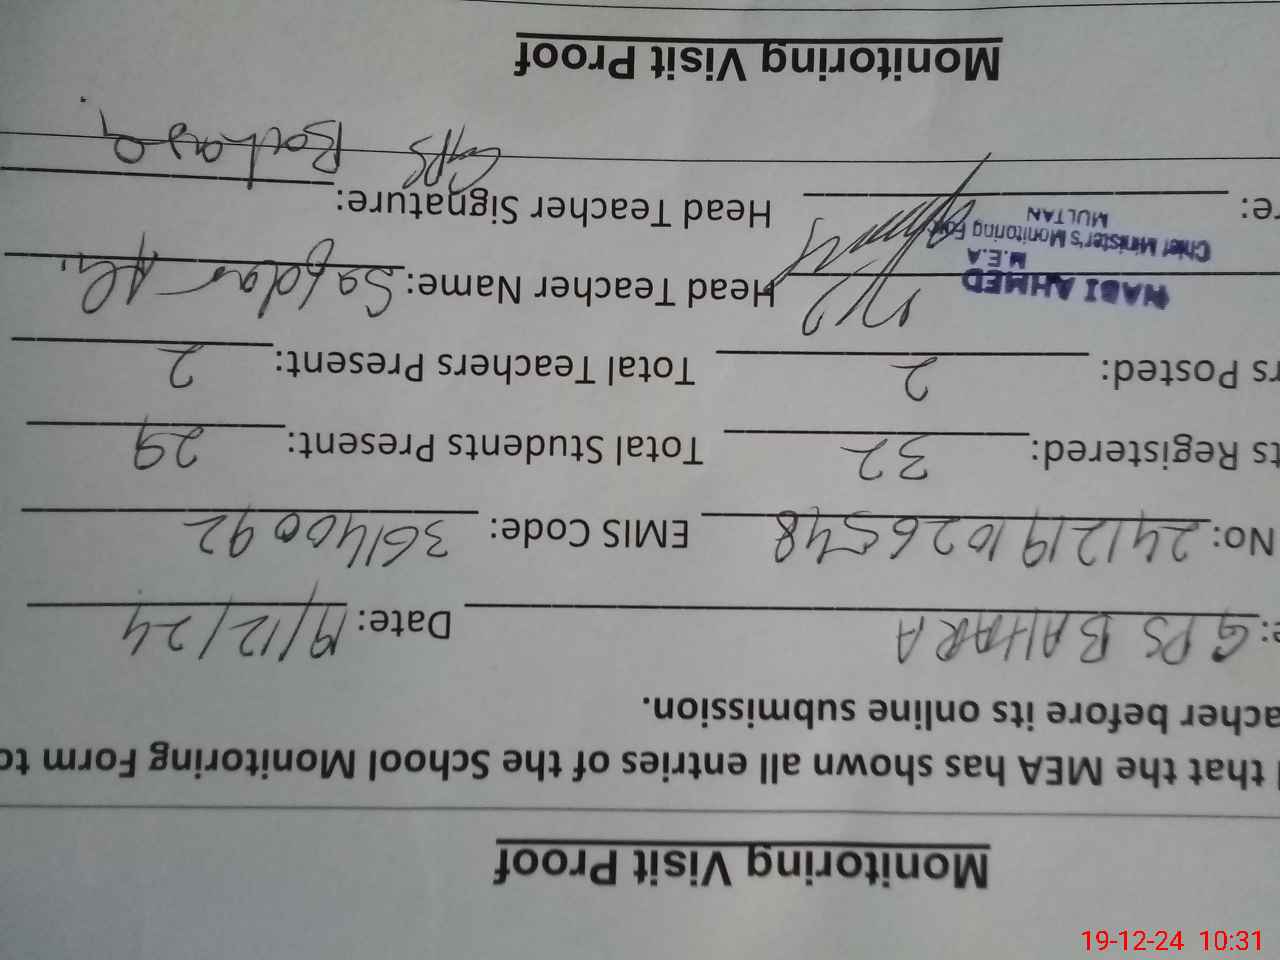 Monitoring Visit Proof
that the MEA has shown all entries of the School Monitoring Form to
acher before its online submission.
e: GPS BAHARA Date: 19/12/24
No: 241219102654 8 EMIS Code: 36140092
ts Registered: 32 Total Students Present: 29
rs Posted: 2 Total Teachers Present: 2
NABI AHMED Head Teacher Name: Safdar Ali.
M.E.A
Chief Minister's Monitoring Force
MULTAN
re: Head Teacher Signature:
GPS
Monitoring Visit Proof
19-12-24 10:31